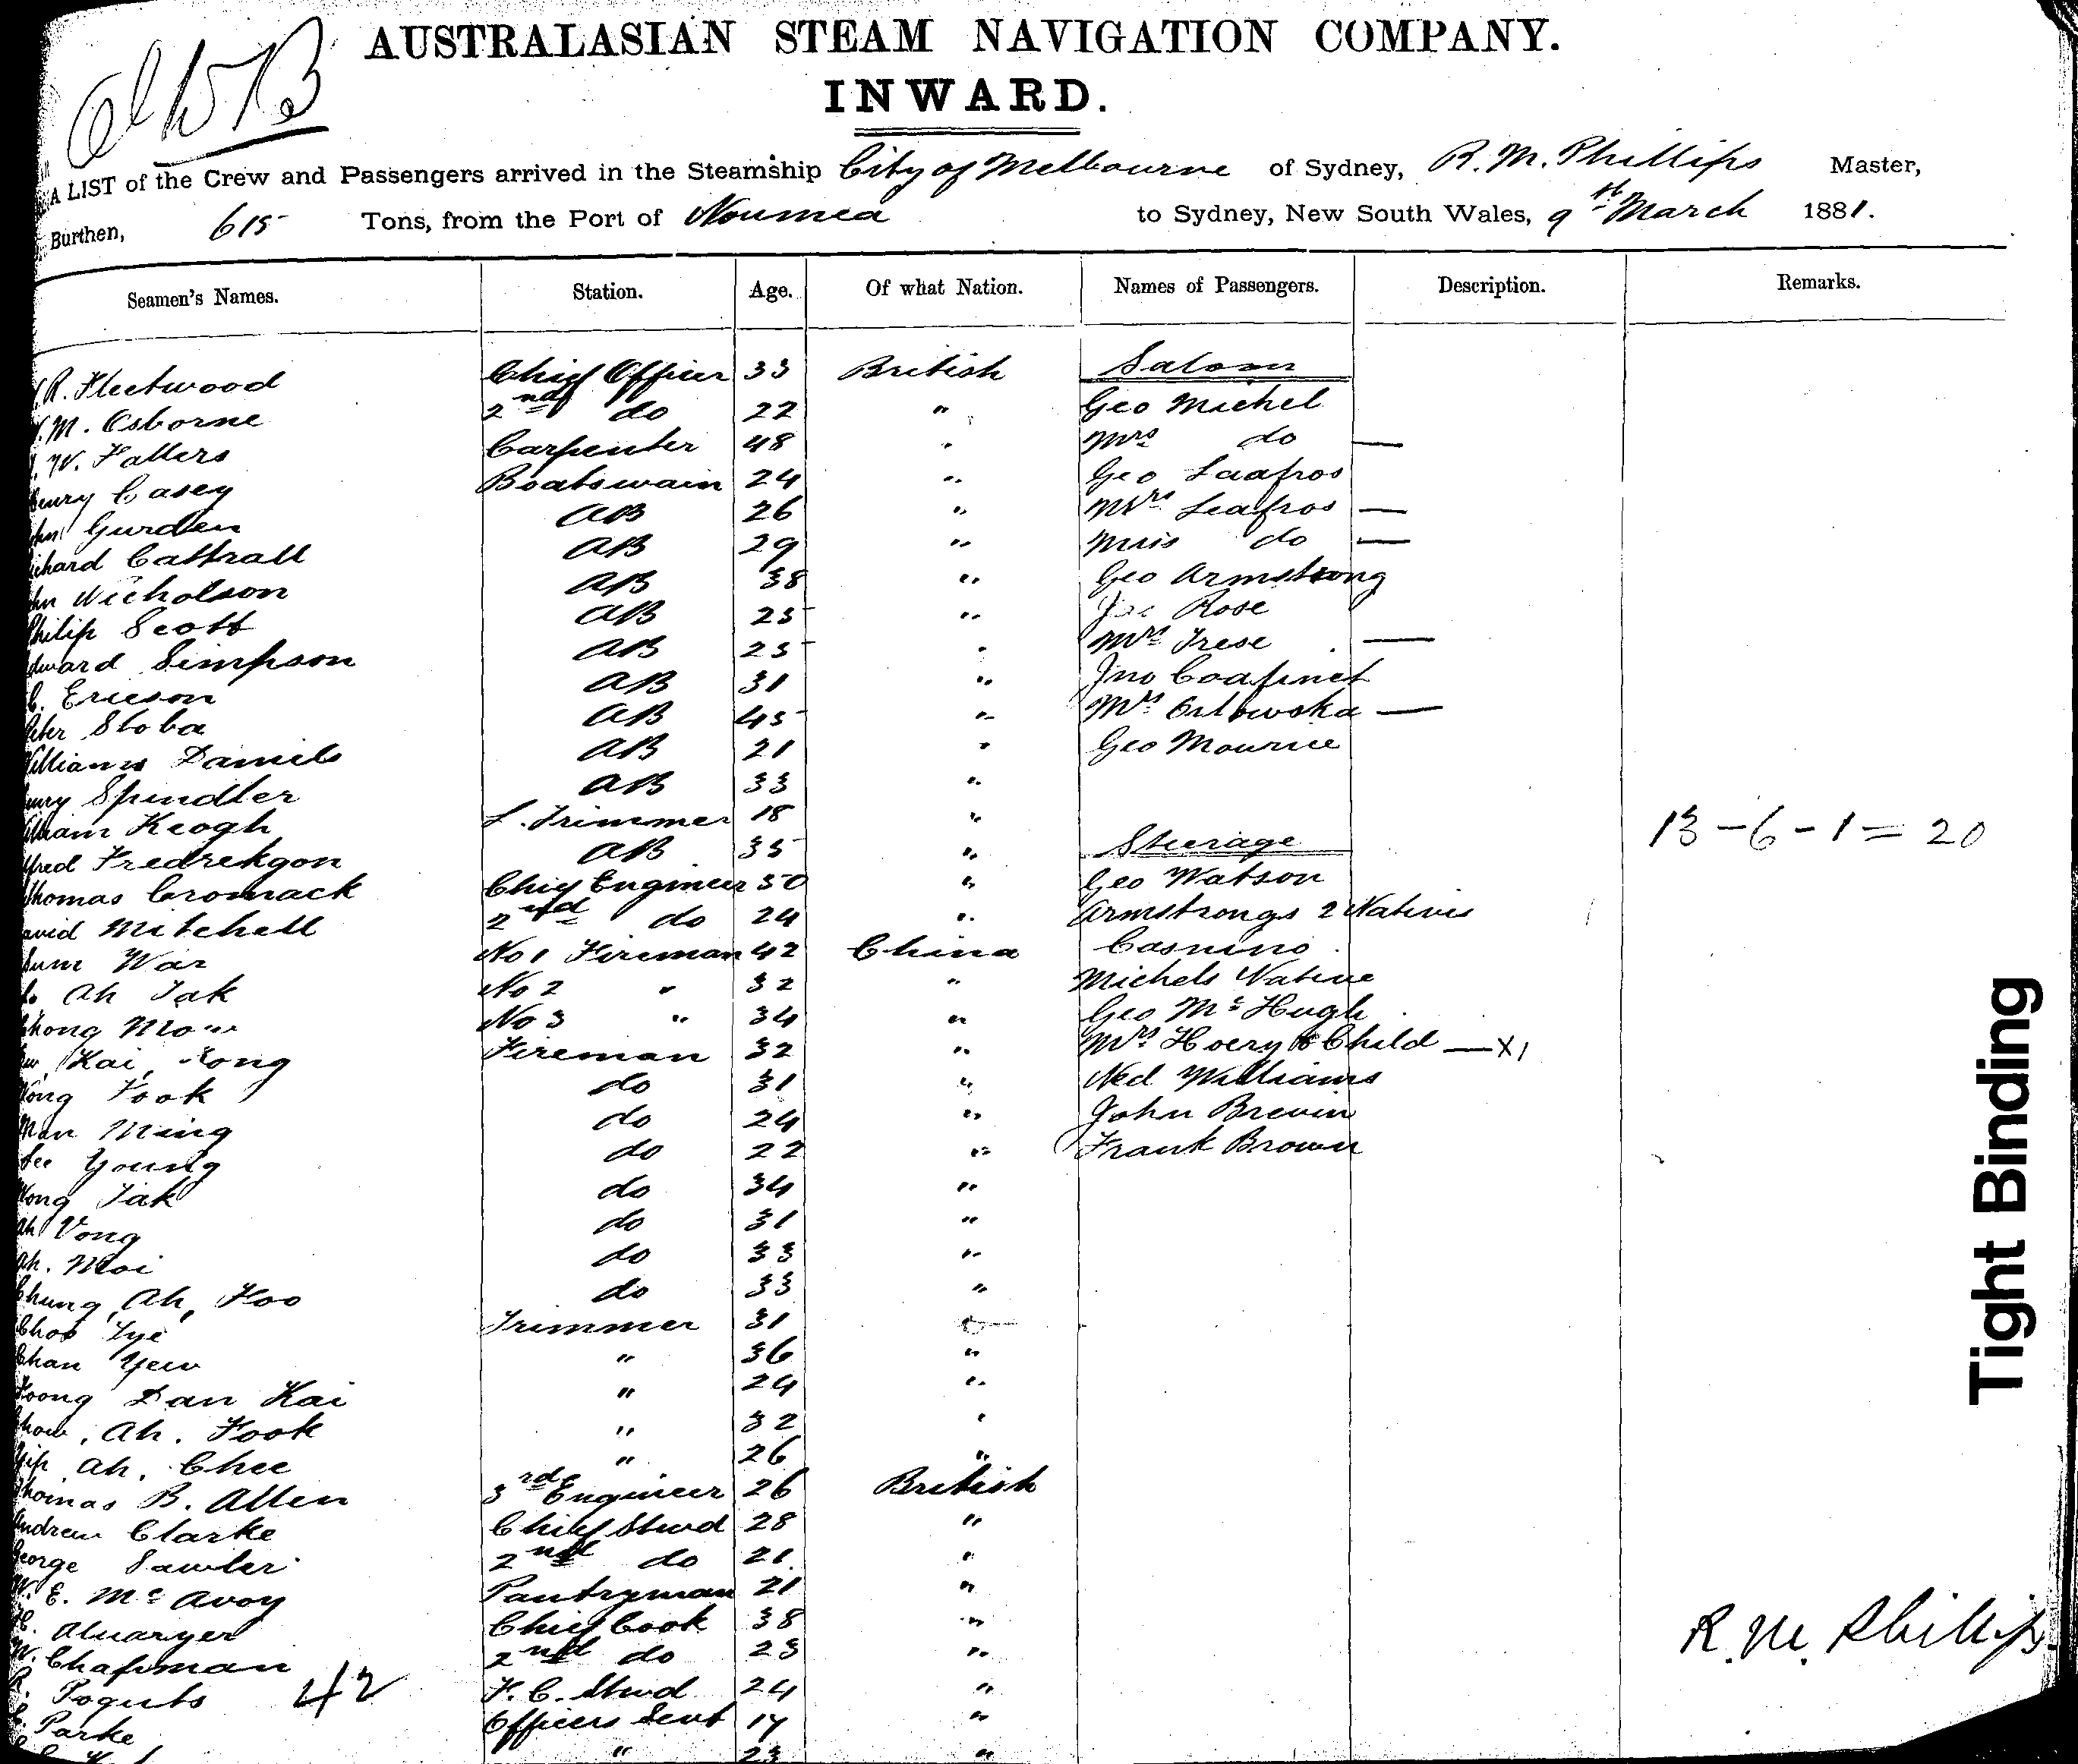 AUSTRALASIAN STEAM NAVIGATION COMPANY.
INWARD.
A LIST of the Crew and Passengers arrived in the Steamship City of Melbourne of Sydney, R. M. Phillips Master,
Burthen, 615 Tons, from the Port of Noumea to Sydney, New South Wales, 9th March 1881.
Seamen's Names. Station. Age. Of what Nation. Names of Passengers. Description. Remarks.
R. Fleetwood Chief Officer 33 British Saloon
M. Osborne 2nd do 22 " Geo Michel
W. Fallers Carpenter 48 " Mrs do —
Casey Boatswain 24 " Geo Laafros
Gurden AB 26 " Mrs Leafros —
Cattrall AB 29 " Miss do —
Nicholson AB 38 " Geo Armstrong
Philip Scott AB 25 " Rose
Simpson AB 25 " Mrs Trese —
Ericson AB 31 " Jno Coafinet
Stoba AB 45 " Mrs Orlowska —
Daniels AB 21 " Geo Mourice
Spindler AB 33 "
Keogh L. Trimmer 18 " 13 - 6 - 1 = 20
Fredrekson AB 35 " Steerage
Thomas Cromack Chief Engineer 50 " Geo Watson
Mitchell 2nd do 24 " Armstrongs 2 Natives
War No 1 Fireman 42 China Casnino
Ah Tak No 2 " 32 " Michels Native
Mow No 3 " 34 " Geo McHugh
Kai Fong Fireman 32 " Mrs Hoery & Child — X1
Fook do 31 " Ned Williams
Ming do 24 " John Brevin
Young do 22 " Frank Brown
Tak do 34 "
Ah Vong do 31 "
Ah. Moi do 33 "
Chung, Ah, Foo do 33 "
Chos Tye Trimmer 31 "
Chan Yew " 36 "
Dan Kai " 24 "
Ah. Fook " 32 "
Yip Ah. Chee " 26 "
Thomas B. Allen 3rd Engineer 26 British
Andrew Clarke Chief Stwd 28 "
George Sawler 2nd do 21 "
W. E. McAvoy Pantryman 21 "
Chief Cook 38 " R. M. Phillips
W. Chapman 2nd do 23 "
42 F. C. Stwd 24 "
Parke Officers Servt 17 "
" 23 "
Tight Binding